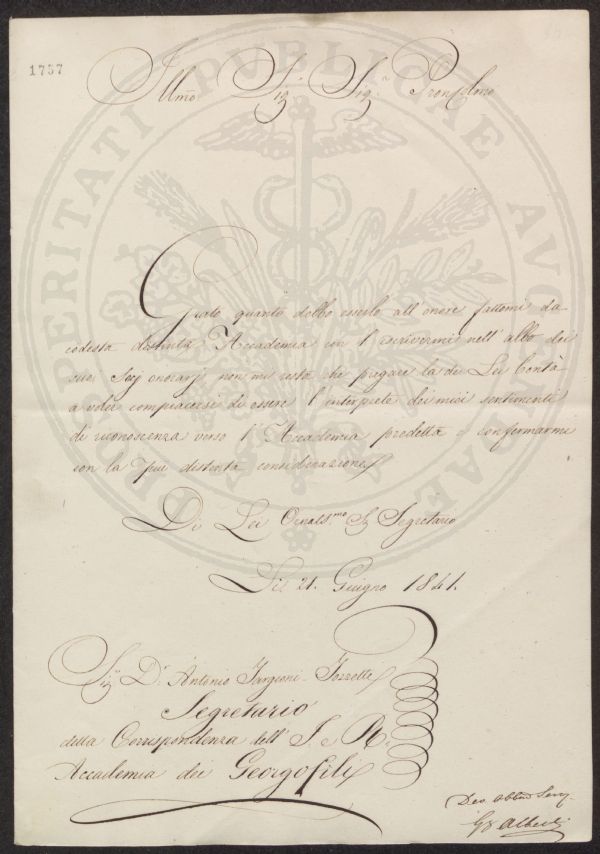 1757
Illmo. Sig. Sig. Pron Colmo
Grato quanto debbo esserlo all' onore fattomi da
codesta distinta Accademia con l' scrivermi nell' albo dei
suoi Socj onorarj non mi resta che pregare la di Lei Bontà
a voler compiacersi di essere l' interprete dei miei sentimenti
di riconoscenza verso l' Accademia predetta e confermarmi
con la piu distinta considerazione
Di Lei Ornats.mo Sig Segretario
Li 21. Giugno 1841.
Sig. Dr. Antonio Targioni-Tozzetti
Segretario
della Corrispondenza dell' I. e R.
Accademia dei Georgofili
Dev. Obbmo Serv.
Alberti
PROSPERITATI PUBLICAE AUGENDAE